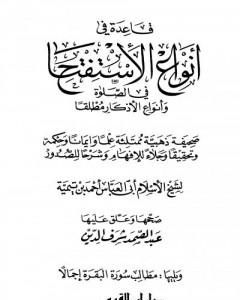 قاعدة في
أنواع الاستفتاح
في الصلوة
وأنواع الأذكار مطلقا
صحيفة ذهبية ممتلئة علما وإيمانا وحكمة
وتحقيقا وجلاء للإفهام وشرحا للصدور
لشيخ الإسلام أبي العباس أحمد بن تيمية
صححها وعلق عليها
عبد الصمد شرف الدين
ويليها : مطالب سورة البقرة إجمالا